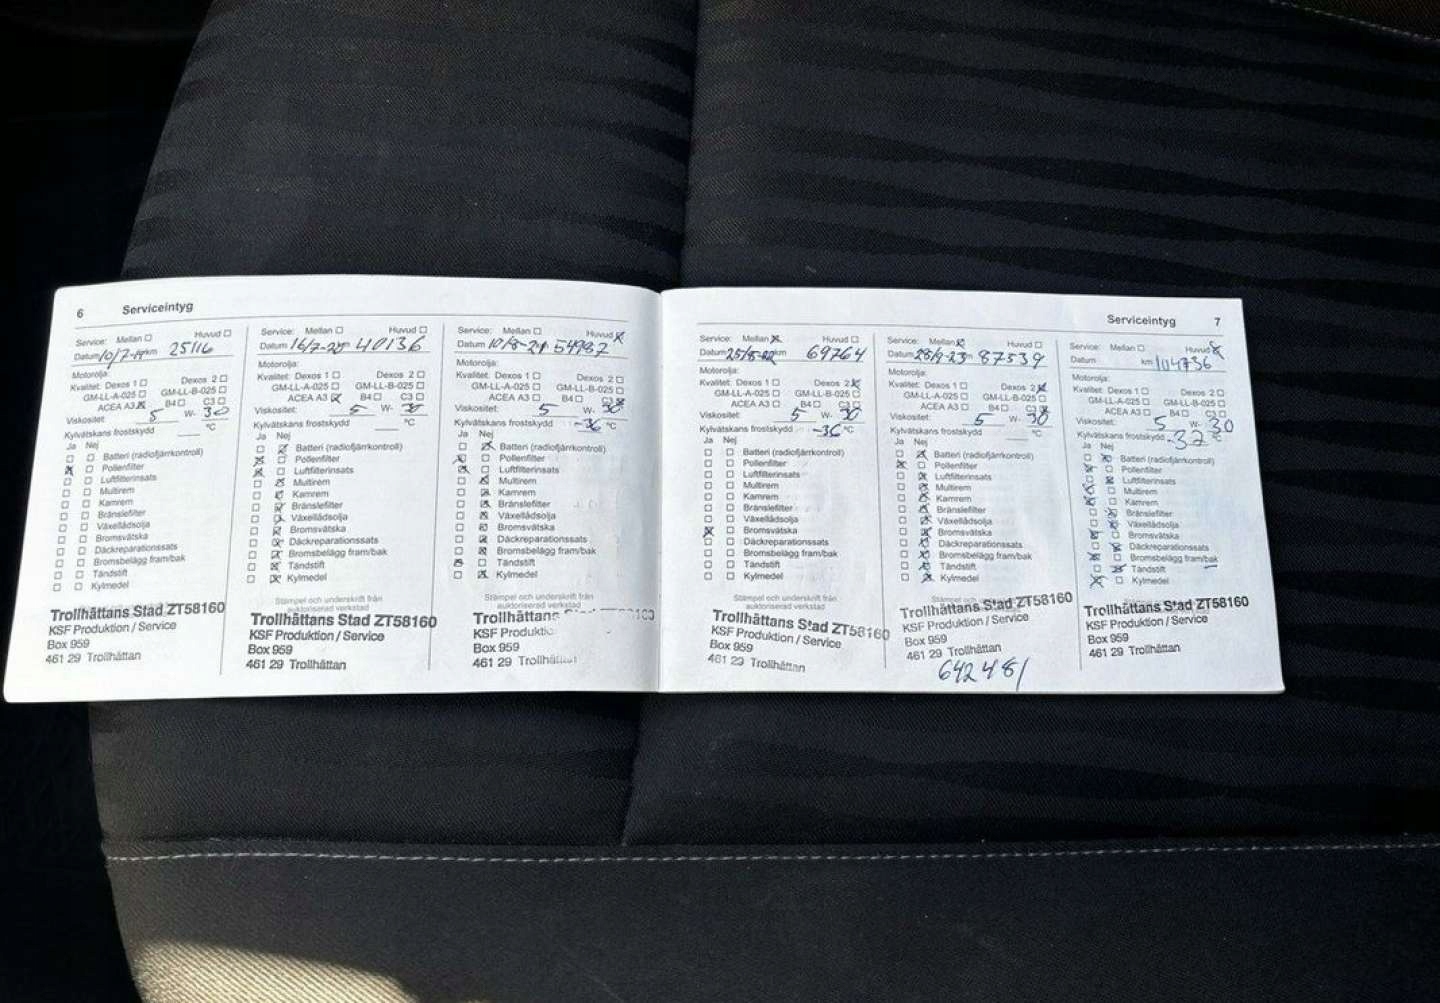 6 Serviceintyg
Service: Mellan ☐ Huvud ☐
Datum 10/7-19 km 25116
Motorolja:
Kvalitet: Dexos 1 ☐ Dexos 2 ☐
GM-LL-A-025 ☐ GM-LL-B-025 ☐
ACEA A3 ☒ B4 ☐ C3 ☐
Viskositet: 5 W- 30
Kylvätskans frostskydd ____ °C
Ja Nej
☐ ☐ Batteri (radiofjärrkontroll)
☒ ☐ Pollenfilter
☐ ☐ Luftfilterinsats
☐ ☐ Multirem
☐ ☐ Kamrem
☐ ☐ Bränslefilter
☐ ☐ Växellådsolja
☐ ☐ Bromsvätska
☐ ☐ Däckreparationssats
☐ ☐ Bromsbelägg fram/bak
☐ ☐ Tändstift
☐ ☐ Kylmedel
Trollhättans Stad ZT58160
KSF Produktion / Service
Box 959
461 29 Trollhättan
Service: Mellan ☐ Huvud ☐
Datum 16/7-20 40136
Motorolja:
Kvalitet: Dexos 1 ☐ Dexos 2 ☐
GM-LL-A-025 ☐ GM-LL-B-025 ☐
ACEA A3 ☒ B4 ☐ C3 ☐
Viskositet: 5 W- 30
Kylvätskans frostskydd ____ °C
Ja Nej
☐ ☒ Batteri (radiofjärrkontroll)
☒ ☐ Pollenfilter
☒ ☐ Luftfilterinsats
☐ ☒ Multirem
☐ ☒ Kamrem
☐ ☒ Bränslefilter
☐ ☒ Växellådsolja
☐ ☒ Bromsvätska
☐ ☒ Däckreparationssats
☐ ☒ Bromsbelägg fram/bak
☐ ☒ Tändstift
☐ ☒ Kylmedel
Stämpel och underskrift från
auktoriserad verkstad
Trollhättans Stad ZT58160
KSF Produktion / Service
Box 959
461 29 Trollhättan
Service: Mellan ☐ Huvud ☒
Datum 10/8-21 54987
Motorolja:
Kvalitet: Dexos 1 ☐ Dexos 2 ☐
GM-LL-A-025 ☐ GM-LL-B-025 ☐
ACEA A3 ☐ B4 ☐ C3 ☒
Viskositet: 5 W- 30
Kylvätskans frostskydd -36 °C
Ja Nej
☐ ☒ Batteri (radiofjärrkontroll)
☒ ☐ Pollenfilter
☒ ☐ Luftfilterinsats
☐ ☒ Multirem
☐ ☒ Kamrem
☐ ☒ Bränslefilter
☐ ☒ Växellådsolja
☐ ☒ Bromsvätska
☐ ☒ Däckreparationssats
☐ ☒ Bromsbelägg fram/bak
☒ ☐ Tändstift
☐ ☒ Kylmedel
Stämpel och underskrift från
auktoriserad verkstad
Trollhättans
KSF Produktio
Box 959
461 29 Trollhättan
Serviceintyg 7
Service: Mellan ☒ Huvud ☐
Datum 25/8-22 km 69764
Motorolja:
Kvalitet: Dexos 1 ☐ Dexos 2 ☒
GM-LL-A-025 ☐ GM-LL-B-025 ☐
ACEA A3 ☐ B4 ☐ C3 ☐
Viskositet: 5 W- 30
Kylvätskans frostskydd -36 °C
Ja Nej
☐ ☐ Batteri (radiofjärrkontroll)
☐ ☐ Pollenfilter
☐ ☐ Luftfilterinsats
☐ ☐ Multirem
☐ ☐ Kamrem
☐ ☐ Bränslefilter
☐ ☐ Växellådsolja
☒ ☐ Bromsvätska
☐ ☐ Däckreparationssats
☐ ☐ Bromsbelägg fram/bak
☐ ☐ Tändstift
☐ ☐ Kylmedel
Stämpel och underskrift från
auktoriserad verkstad
Trollhättans Stad ZT58160
KSF Produktion / Service
Box 959
461 29 Trollhättan
Service: Mellan ☒ Huvud ☐
Datum 28/9-23 87539
Motorolja:
Kvalitet: Dexos 1 ☐ Dexos 2 ☒
GM-LL-A-025 ☐ GM-LL-B-025 ☐
ACEA A3 ☐ B4 ☐ C3 ☒
Viskositet: 5 W- 30
Kylvätskans frostskydd ____ °C
Ja Nej
☐ ☒ Batteri (radiofjärrkontroll)
☒ ☐ Pollenfilter
☐ ☒ Luftfilterinsats
☐ ☒ Multirem
☐ ☒ Kamrem
☐ ☒ Bränslefilter
☐ ☒ Växellådsolja
☐ ☒ Bromsvätska
☐ ☒ Däckreparationssats
☐ ☒ Bromsbelägg fram/bak
☐ ☒ Tändstift
☐ ☒ Kylmedel
Trollhättans Stad ZT58160
KSF Produktion / Service
Box 959
461 29 Trollhättan
642481
Service: Mellan ☐ Huvud ☒
Datum km 104736
Motorolja:
Kvalitet: Dexos 1 ☐ Dexos 2 ☐
GM-LL-A-025 ☐ GM-LL-B-025 ☐
ACEA A3 ☐ B4 ☐ C3 ☒
Viskositet: 5 W- 30
Kylvätskans frostskydd -37 °C
Ja Nej
☐ ☒ Batteri (radiofjärrkontroll)
☒ ☐ Pollenfilter
☐ ☒ Luftfilterinsats
☒ ☐ Multirem
☒ ☐ Kamrem
☐ ☒ Bränslefilter
☐ ☒ Växellådsolja
☒ ☐ Bromsvätska
☐ ☒ Däckreparationssats
☒ ☐ Bromsbelägg fram/bak
☐ ☒ Tändstift
☒ ☐ Kylmedel
Trollhättans Stad ZT58160
KSF Produktion / Service
Box 959
461 29 Trollhättan